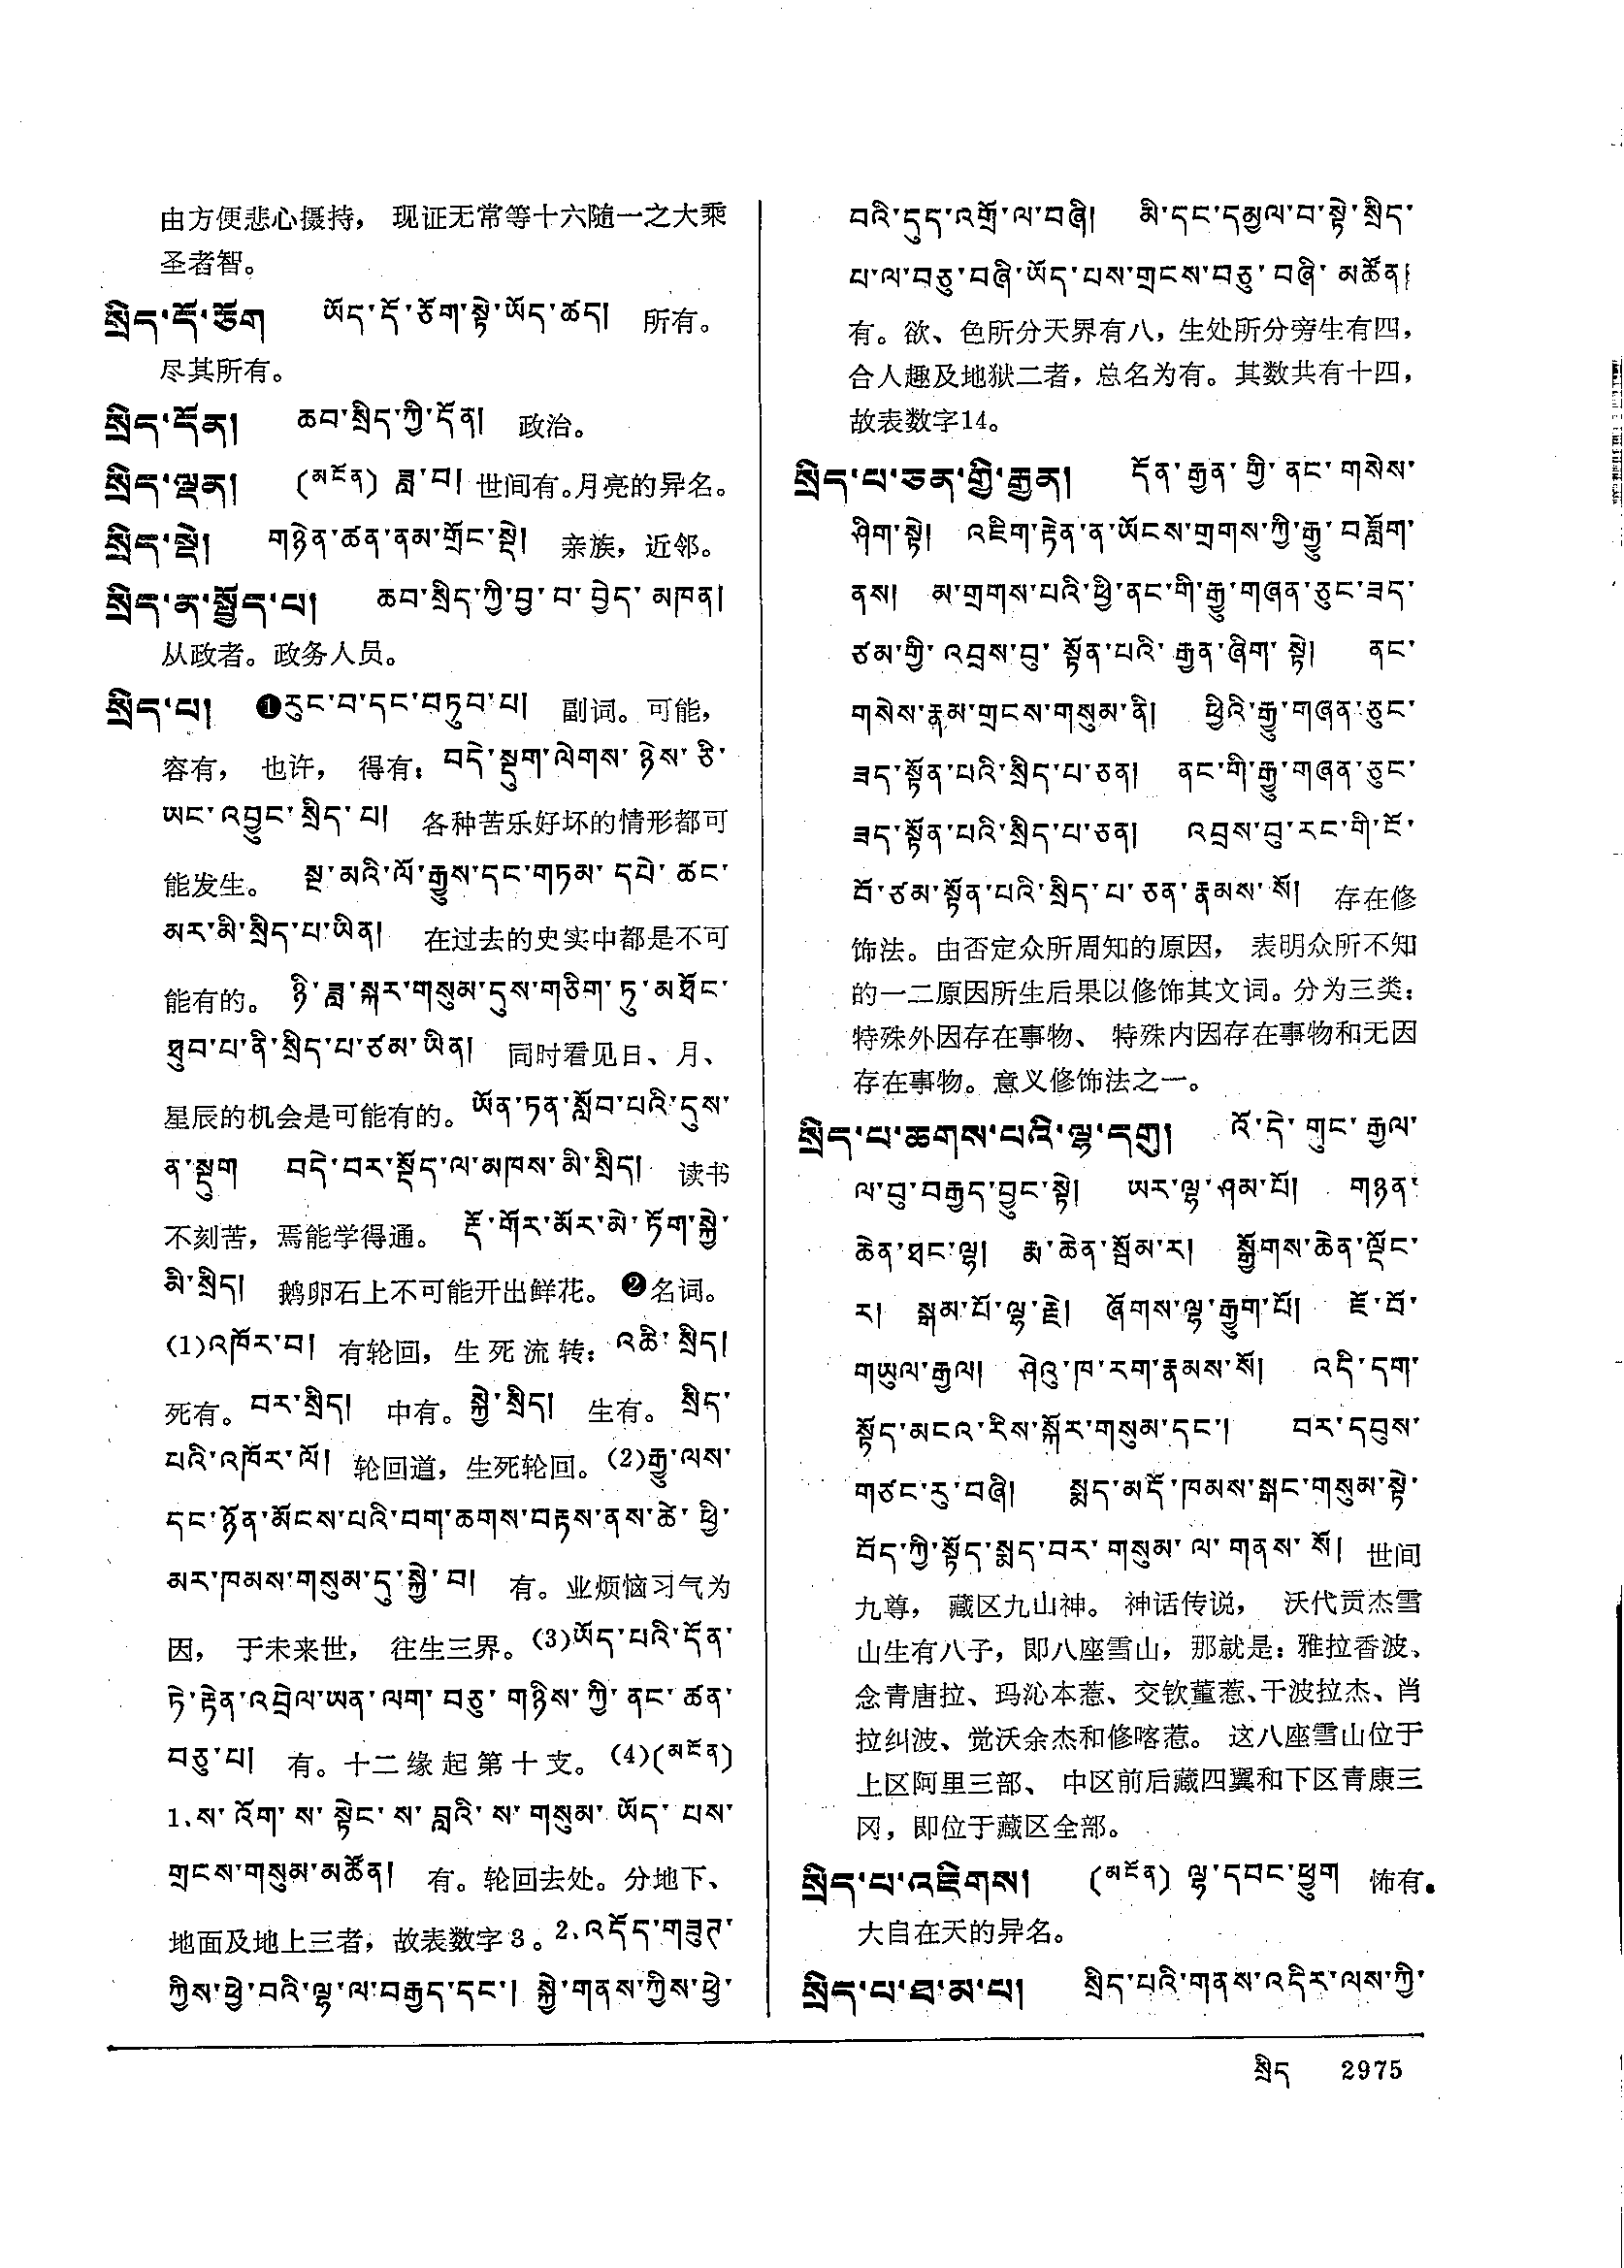 由方便悲心摄持， 现证无常等十六随一之大乘
圣者智。
སྲིད་དོ་ཅོག ཡོད་དོ་ཅོག་སྟེ་ཡོད་ཚད། 所有。
尽其所有。
སྲིད་དོན། ཆབ་སྲིད་ཀྱི་དོན། 政治。
སྲིད་ལྡན། (མངོན) ཟླ་བ། 世间有。月亮的异名。
སྲིད་སྡེ། གཉེན་ཚན་ནམ་གྲོང་སྡེ། 亲族，近邻。
སྲིད་ན་སྤྱོད་པ། ཆབ་སྲིད་ཀྱི་བྱ་བ་བྱེད་མཁན།
从政者。政务人员。
སྲིད་པ། ❶རུང་བ་དང་བཏུབ་པ། 副词。可能，
容有， 也许， 得有：བདེ་སྡུག་ལེགས་ཉེས་ཅི་
ཡང་འབྱུང་སྲིད་པ། 各种苦乐好坏的情形都可
能发生。 སྔ་མའི་ལོ་རྒྱུས་དང་གཏམ་དཔེ་ཚང་
མར་མི་སྲིད་པ་ཡིན། 在过去的史实中都是不可
能有的。 ཉི་ཟླ་སྐར་གསུམ་དུས་གཅིག་ཏུ་མཐོང་
ཐུབ་པ་ནི་སྲིད་པ་ཙམ་ཡིན། 同时看见日、月、
星辰的机会是可能有的。 ཡོན་ཏན་སློབ་པའི་དུས་
ན་སྡུག བདེ་བར་སྡོད་ལ་མཁས་མི་སྲིད། 读书
不刻苦，焉能学得通。 རྡོ་གོར་མོར་མེ་ཏོག་སྐྱེ་
མི་སྲིད། 鹅卵石上不可能开出鲜花。 ❷名词。
(1)འཁོར་བ། 有轮回，生死流转：འཆི་སྲིད།
死有。བར་སྲིད། 中有。སྐྱེ་སྲིད། 生有。སྲིད་
པའི་འཁོར་ལོ། 轮回道，生死轮回。(2)རྒྱུ་ལས་
དང་ཉོན་མོངས་པའི་བག་ཆགས་བརྟས་ནས་ཚེ་ཕྱི་
མར་ཁམས་གསུམ་དུ་སྐྱེ་བ། 有。业烦恼习气为
因， 于未来世， 往生三界。(3)ཡོད་པའི་དོན་
ཏེ་རྟེན་འབྲེལ་ཡན་ལག་བཅུ་གཉིས་ཀྱི་ནང་ཚན་
བཅུ་པ། 有。十二缘起第十支。(4)(མངོན)
1.ས་འོག་ས་སྟེང་ས་བླའི་ས་གསུམ་ཡོད་པས་
གྲངས་གསུམ་མཚོན། 有。轮回去处。分地下、
地面及地上三者，故表数字3。2.འདོད་གཟུཊ་
ཀྱིས་ཕྱེ་བའི་ལྷ་ལ་བརྒྱད་དང་། སྐྱེ་གནས་ཀྱིས་ཕྱེ་
བའི་དུད་འགྲོ་ལ་བཞི། མི་དང་དམྱལ་བ་སྟེ་སྲིད་
པ་ལ་བཅུ་བཞི་ཡོད་པས་གྲངས་བཅུ་བཞི་མཚོན།
有。欲、色所分天界有八，生处所分旁生有四，
合人趣及地狱二者，总名为有。其数共有十四，
故表数字14。
སྲིད་པ་ཅན་གྱི་རྒྱན། དོན་རྒྱན་གྱི་ནང་གསེས་
ཤིག་སྟེ། འཇིག་རྟེན་ན་ཡོངས་གྲགས་ཀྱི་རྒྱུ་བཟློག་
ནས། མ་གྲགས་པའི་ཕྱི་ནང་གི་རྒྱུ་གཞན་ཅུང་ཟད་
ཙམ་གྱི་འབྲས་བུ་སྟོན་པའི་རྒྱན་ཞིག་སྟེ། ནང་
གསེས་རྣམ་གྲངས་གསུམ་ནི། ཕྱིའི་རྒྱུ་གཞན་ཅུང་
ཟད་སྟོན་པའི་སྲིད་པ་ཅན། ནང་གི་རྒྱུ་གཞན་ཅུང་
ཟད་སྟོན་པའི་སྲིད་པ་ཅན། འབྲས་བུ་རང་གི་ངོ་
བོ་ཙམ་སྟོན་པའི་སྲིད་པ་ཅན་རྣམས་སོ། 存在修
饰法。由否定众所周知的原因， 表明众所不知
的一二原因所生后果以修饰其文词。分为三类：
特殊外因存在事物、 特殊内因存在事物和无因
存在事物。意义修饰法之一。
སྲིད་པ་ཆགས་པའི་ལྷ་དགུ། འོ་དེ་གུང་རྒྱལ་
ལ་བུ་བརྒྱད་བྱུང་སྟེ། ཡར་ལྷ་ཤམ་པོ། གཉན་
ཆེན་ཐང་ལྷ། རྨ་ཆེན་སྤོམ་ར། སྒྱོགས་ཆེན་ལྡོང་
ར། སྒམ་པོ་ལྷ་རྗེ། ཞོགས་ལྷ་རྒྱུག་པོ། ཇོ་བོ་
གཡུལ་རྒྱལ། ཤེའུ་ཁ་རག་རྣམས་སོ། འདི་དག་
སྟོད་མངའ་རིས་སྐོར་གསུམ་དང་། བར་དབུས་
གཙང་རུ་བཞི། སྨད་མདོ་ཁམས་སྒང་གསུམ་སྟེ་
བོད་ཀྱི་སྟོད་སྨད་བར་གསུམ་ལ་གནས་སོ། 世间
九尊， 藏区九山神。 神话传说， 沃代贡杰雪
山生有八子，即八座雪山，那就是：雅拉香波、
念青唐拉、玛沁本惹、交钦董惹、干波拉杰、肖
拉纠波、觉沃余杰和修喀惹。 这八座雪山位于
上区阿里三部、 中区前后藏四翼和下区青康三
冈，即位于藏区全部。
སྲིད་པ་འཇིགས། (མངོན) ལྷ་དབང་ཕྱུག 怖有。
大自在天的异名。
སྲིད་པ་ཐ་མ་པ། སྲིད་པའི་གནས་འདིར་ལས་ཀྱི་
སྲིད 2975